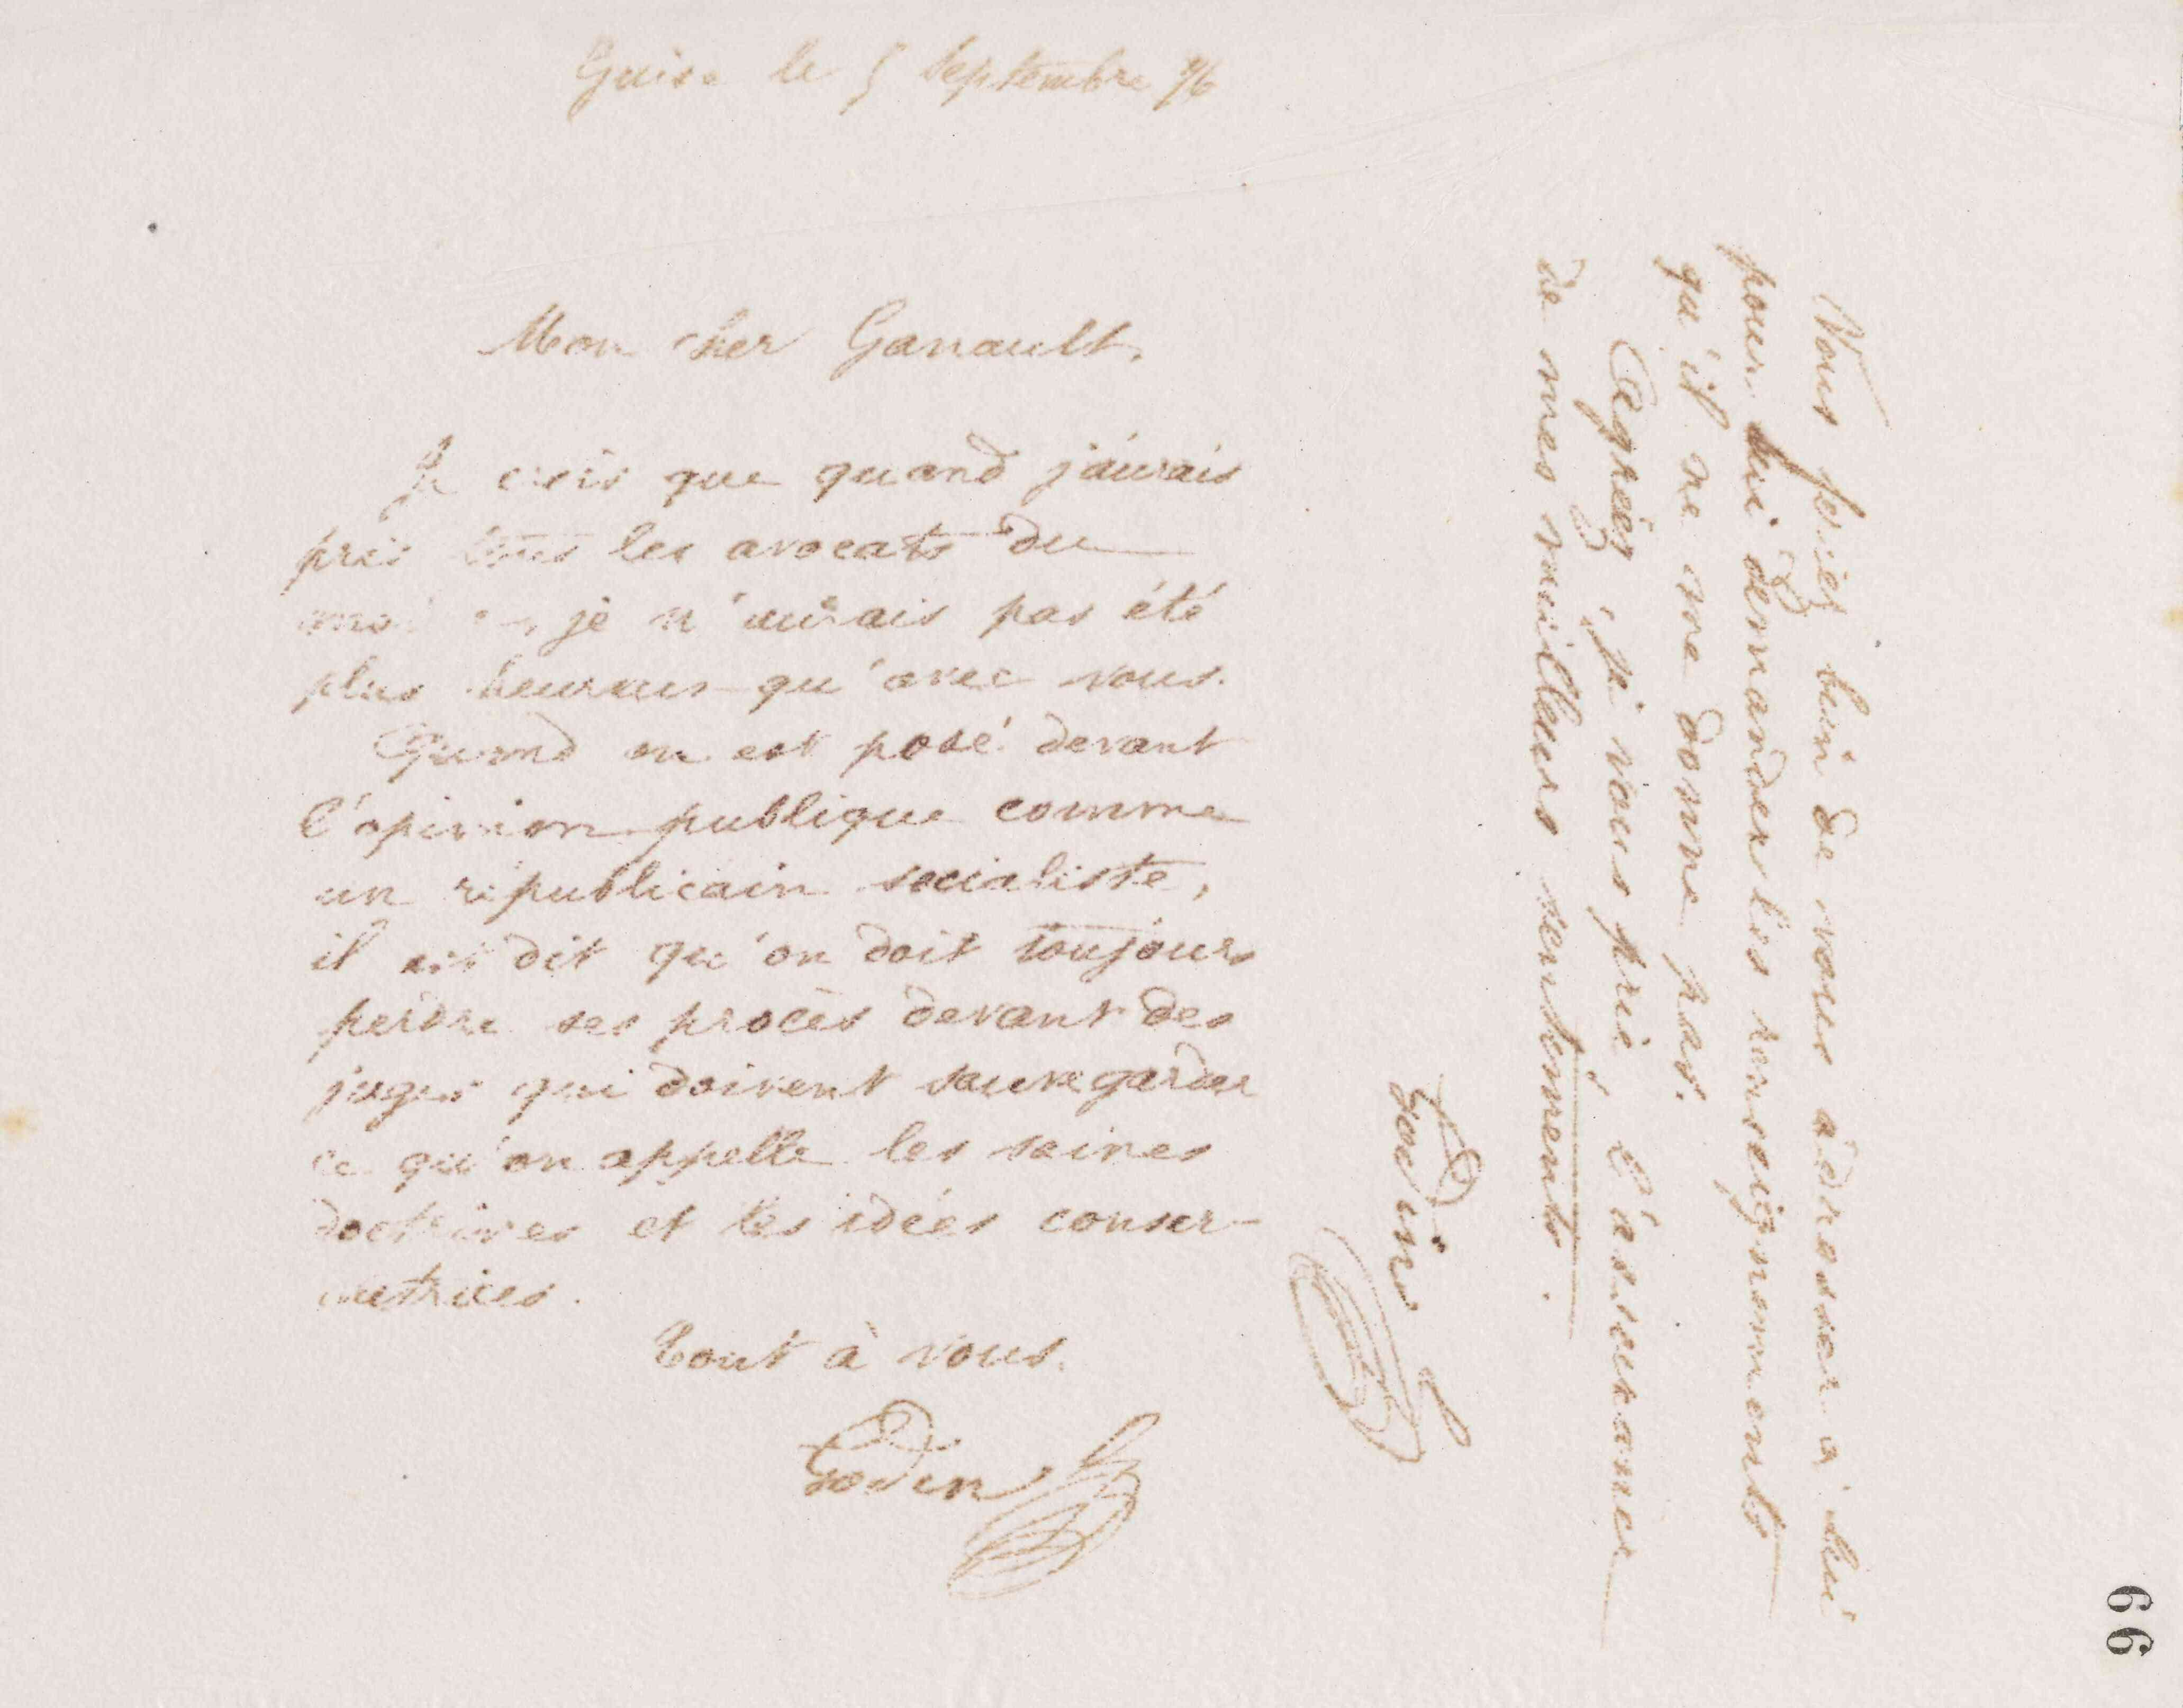 Guise le 5 Septembre 76
Mon cher Ganault,
Je crois que quand j'aurais
pris tous les avocats du
je n'aurais pas été
plus heureux qu'avec vous.
Quand on est posé devant
l'opinion publique comme
un républicain socialiste,
il est dit qu'on doit toujours
perdre ses procès devant des
juges qui doivent sauvegarder
ce qu'on appelle les saines
doctrines et les idées conser-
vatrices.
Tout à vous.
Godin
Vous feriez bien de vous adresser à lui
pour lui demander les renseignements
qu'il ne me donne pas.
Agréez, je vous prie, l'assurance
de mes meilleurs sentiments.
Godin
66